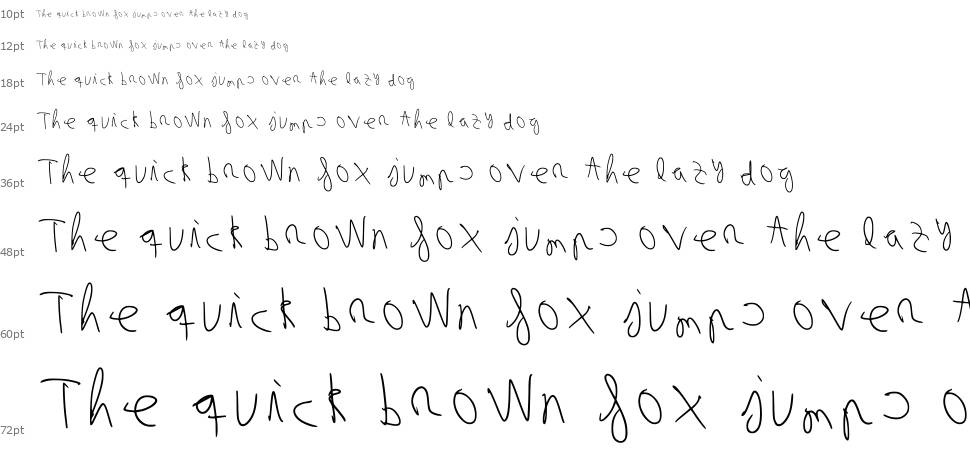 10pt The quick brown fox jumps over the lazy dog
12pt The quick brown fox jumps over the lazy dog
18pt The quick brown fox jumps over the lazy dog
24pt The quick brown fox jumps over the lazy dog
36pt The quick brown fox jumps over the lazy dog
48pt The quick brown fox jumps over the lazy
60pt The quick brown fox jumps over t
72pt The quick brown fox jumps o